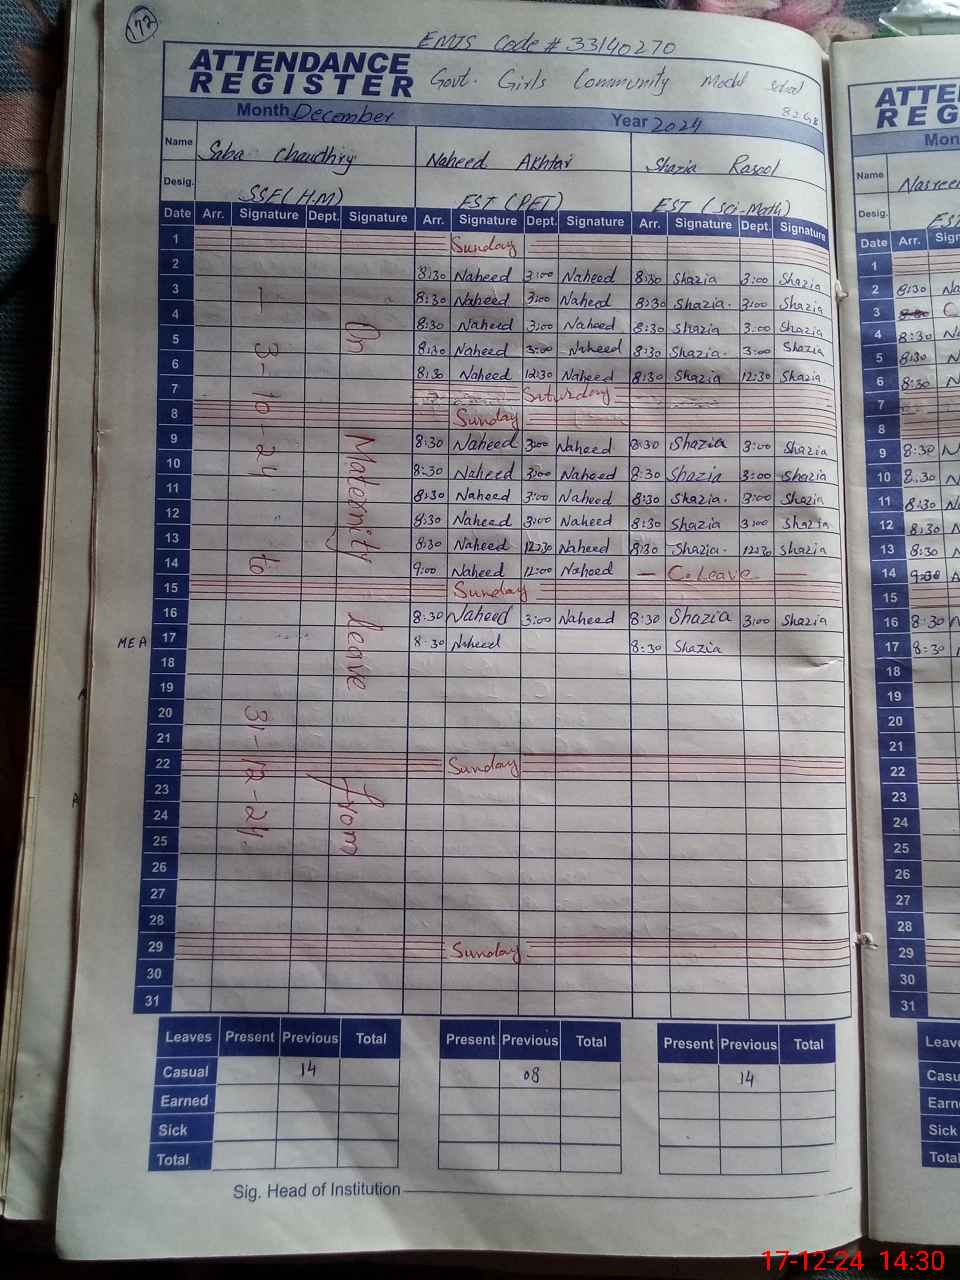 172
EMIS Code # 33140270
ATTENDANCE REGISTER Govt. Girls Community Model School
Month December Year 2024
Name Saba Chaudhry Naheed Akhtar Shazia Rasool
Desig. SSE(H.M) EST (PET) EST (Sci-Math)
Date Arr. Signature Dept. Signature Arr. Signature Dept. Signature Arr. Signature Dept. Signature
1 Sunday
2 8:30 Naheed 3:00 Naheed 8:30 Shazia 3:00 Shazia
3 8:30 Naheed 3:00 Naheed 8:30 Shazia. 3:00 Shazia
4 8:30 Naheed 3:00 Naheed 8:30 Shazia 3:00 Shazia
5 8:30 Naheed 3:00 Naheed 8:30 Shazia. 3:00 Shazia
6 8:30 Naheed 12:30 Naheed 8:30 Shazia 12:30 Shazia
7 Saturday
8 Sunday
9 8:30 Naheed 3:00 Naheed 8:30 Shazia 3:00 Shazia
10 8:30 Naheed 3:00 Naheed 8:30 Shazia 3:00 Shazia
11 8:30 Naheed 3:00 Naheed 8:30 Shazia. 3:00 Shazia
12 8:30 Naheed 3:00 Naheed 8:30 Shazia 3:00 Shazia
13 8:30 Naheed 12:30 Naheed 8:30 Shazia. 12:30 Shazia
14 9:00 Naheed 12:00 Naheed — C. Leave —
15 Sunday
16 8:30 Naheed 3:00 Naheed 8:30 Shazia 3:00 Shazia
MEA 17 8:30 Naheed 8:30 Shazia
18
19
20
21
22 Sunday
23
24
25
26
27
28
29 Sunday
30
31
On Maternity leave from
1-3-10-24 to 31-12-24.
Leaves Present Previous Total Present Previous Total Present Previous Total
Casual 14 08 14
Earned
Sick
Total
Sig. Head of Institution
ATTE
REG
Mon
Name Nasree
Desig. EST
Date Arr. Sign
1
2 8:30 Na
3 C
4 8:30 N
5 8:30 N
6 8:30 N
7
8
9 8:30 N
10 8:30 N
11 8:30 N
12 8:30 N
13 8:30 N
14
15
16 8:30 N
17 8:30
18
19
20
21
22
23
24
25
26
27
28
29
30
31
Leave
Casu
Earn
Sick
Tota
17-12-24 14:30